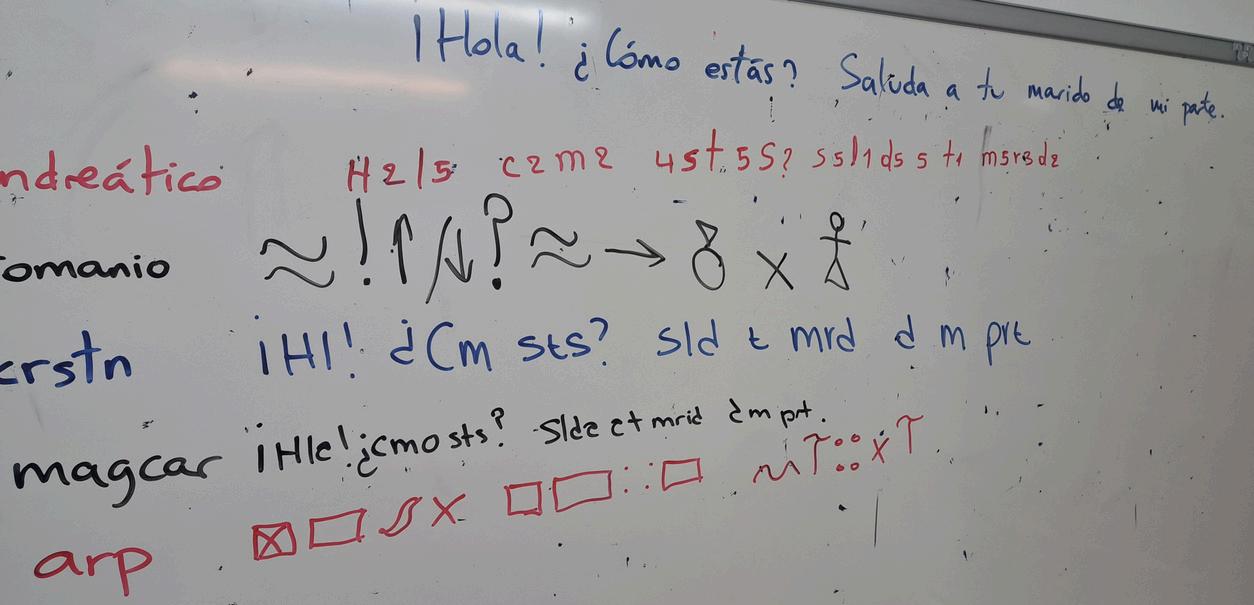 ¡Hola! ¿Cómo estás? Saluda a tu marido de mi parte.
ndreático H2l5 c2m2 4st5S? s5l1d5 5 t1 m5r3d2
omanio ≈ ! ↑ ? ≈ → x
crstn ¡Hl! ¿Cm sts? sld t mrd d m prt
magcar ¡Hle! ¿cmo sts? Slde et mrid dm prt.
arp